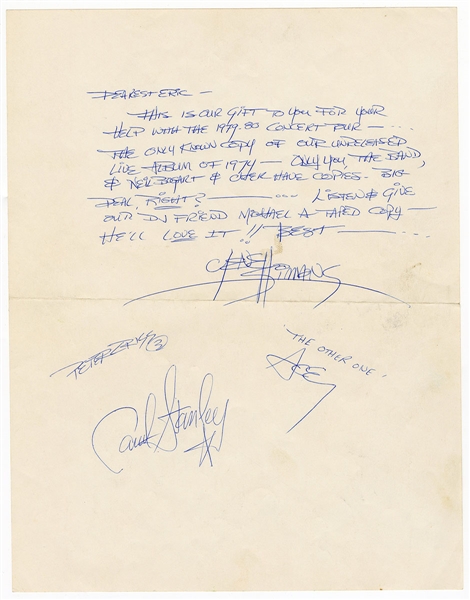 DEAREST ERIC —
THIS IS OUR GIFT TO YOU FOR YOUR
HELP WITH THE 1979-80 CONCERT TOUR — ...
THE ONLY KNOWN COPY OF OUR UNRELEASED
LIVE ALBUM OF 1974 — ONLY YOU, THE BAND,
& NEIL BOGART & CHER HAVE COPIES. BIG
DEAL, RIGHT? — .... LISTEN & GIVE
OUR DJ FRIEND MICHAEL A TAPED COPY —
HE'LL LOVE IT!! BEST — ....
GENE SIMMONS
PETER CRISS
"THE OTHER ONE"
ACE
Paul Stanley